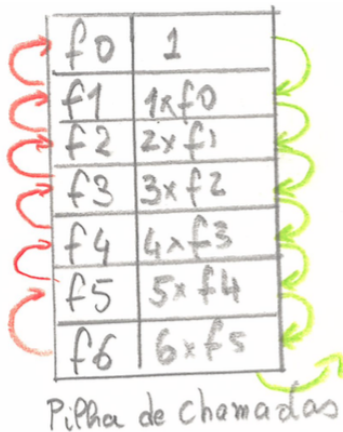 f0 1
f1 1xf0
f2 2xf1
f3 3xf2
f4 4xf3
f5 5xf4
f6 6xf5
Pilha de chamadas